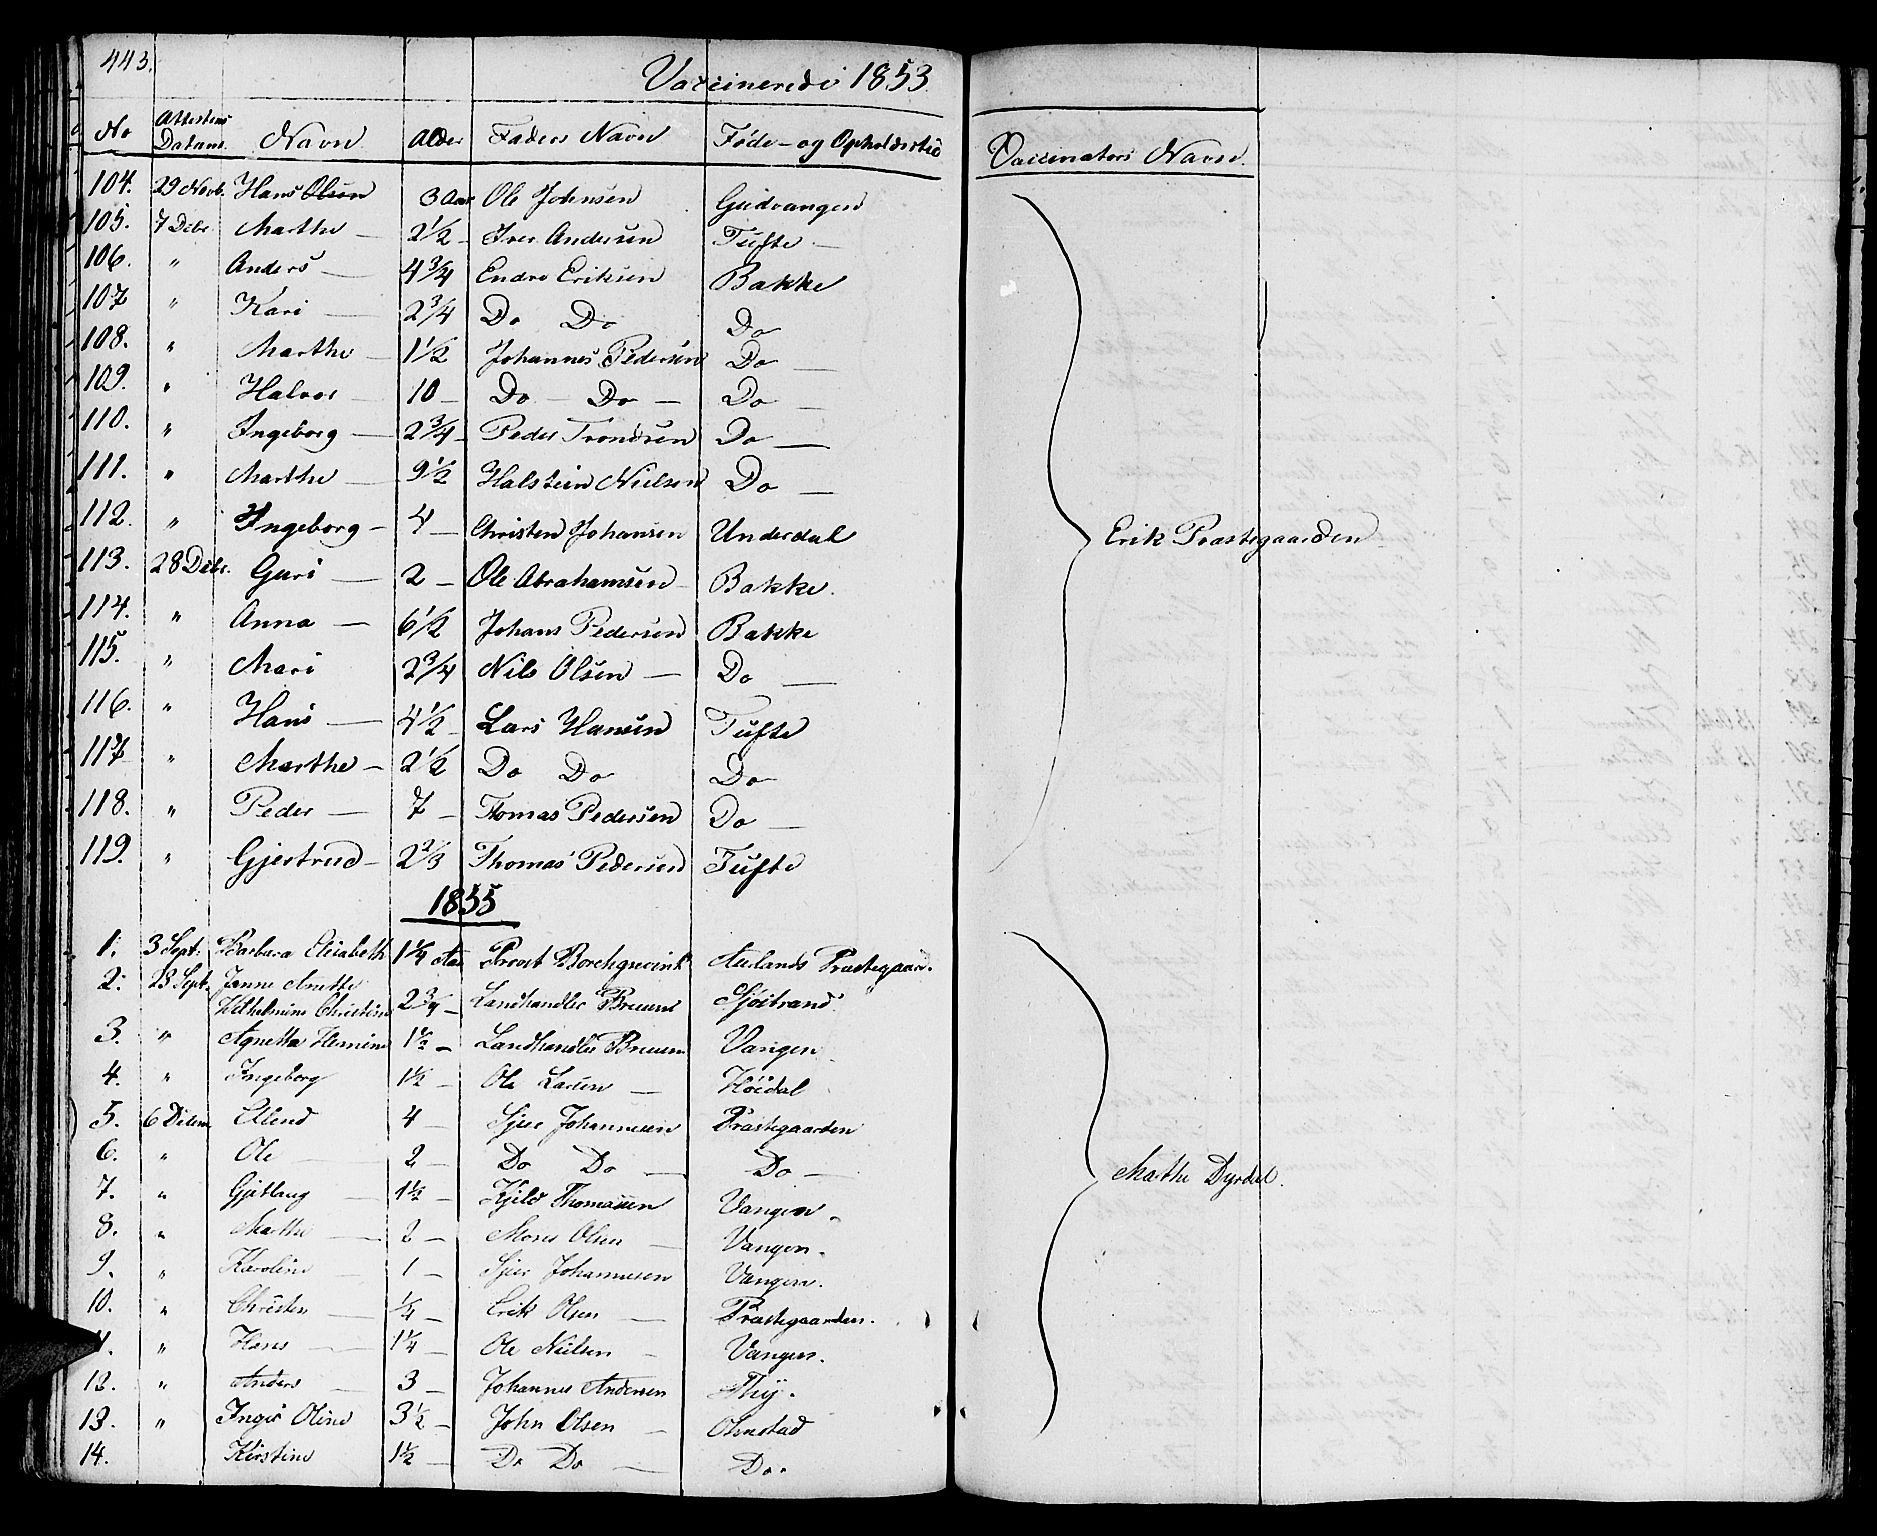 443.
Vaccinerede 1853.
No Attestens Datum. Navn Alder Faders Navn Føde- og Opholdssted Vaccinators Navn.
104. 29 Novb. Hans Olsen 3 Aar Ole Johnsen Gudvangen
105. 7 Debr. Marthe — 2 1/2 - Iver Andersen Tufte —
106. " Anders — 4 3/4 Endre Eriksen Bakke
107 " Kari — 2 3/4 Do Do Do
108. " Marthe — 1 1/2 Johannes Pedersen Do —
109. " Halvor — 10 — Do — Do — Do —
110. " Ingeborg — 2 3/4 - Peder Trondsen Do —
111. " Marthe — 9 1/2 Halstein Nielsen Do —
112. " Ingeborg - 4 — Christen Johansen Underdal
Erik Præstegaarden
113. 28 Debr. Guri — 2 - Ole Abrahamsen Bakke.
114. " Anna — 6 1/2 Johans Pedersen Bakke
115. " Mari 2 3/4 Nils Olsen — Do —
116. " Hans — 4 1/2 - Lars Hansen Tufte
117 " Marthe - 2 1/2 Do Do Do
118. " Peder — 7 - Thomas Pedersen Do —
119. " Gjertrud - 2 2/3 Thomas Pedersen Tufte
1855
1. 3 Sept. Barbara Elisabeth 1 1/4 Aar Provst Borchgrevink Aurlands Præstegaar.
2. 23 Sept. Janne Anette
Wilhelmine Christine 2 3/4 - Landhandler Bruun Sjøstrand
3. " Agnetha Hermine 1 1/2 - Landhandler Bruun Vangen
4. " Ingeborg 1 1/2 - Ole Larsen — Høidal
5. 6 Decem. Elend 4 - Sjur Johannesen Præstegaarden
6. " Ole — 2 - Do Do — Do —
Marthe Dyrdal.
7. " Gjetlaug — 1 1/2 - Kjeld Thomassen Vangen -
8. " Marthe — 2 - Mons Olsen — Vangen -
9. " Karoline — 1 - Sjur Johannesen Vangen.
10. " Christen — 1/4 - Erik Olsen — Præstegaarden.
" Hans — 1 1/4 - Ole Nielsen - Vangen.
12. " Anders — 3 - Johannes Andersen
13. " Inger Oline 3 1/2 - John Olsen — Ohnstad
14. Kirstine 1 1/2 - Do Do — Do.